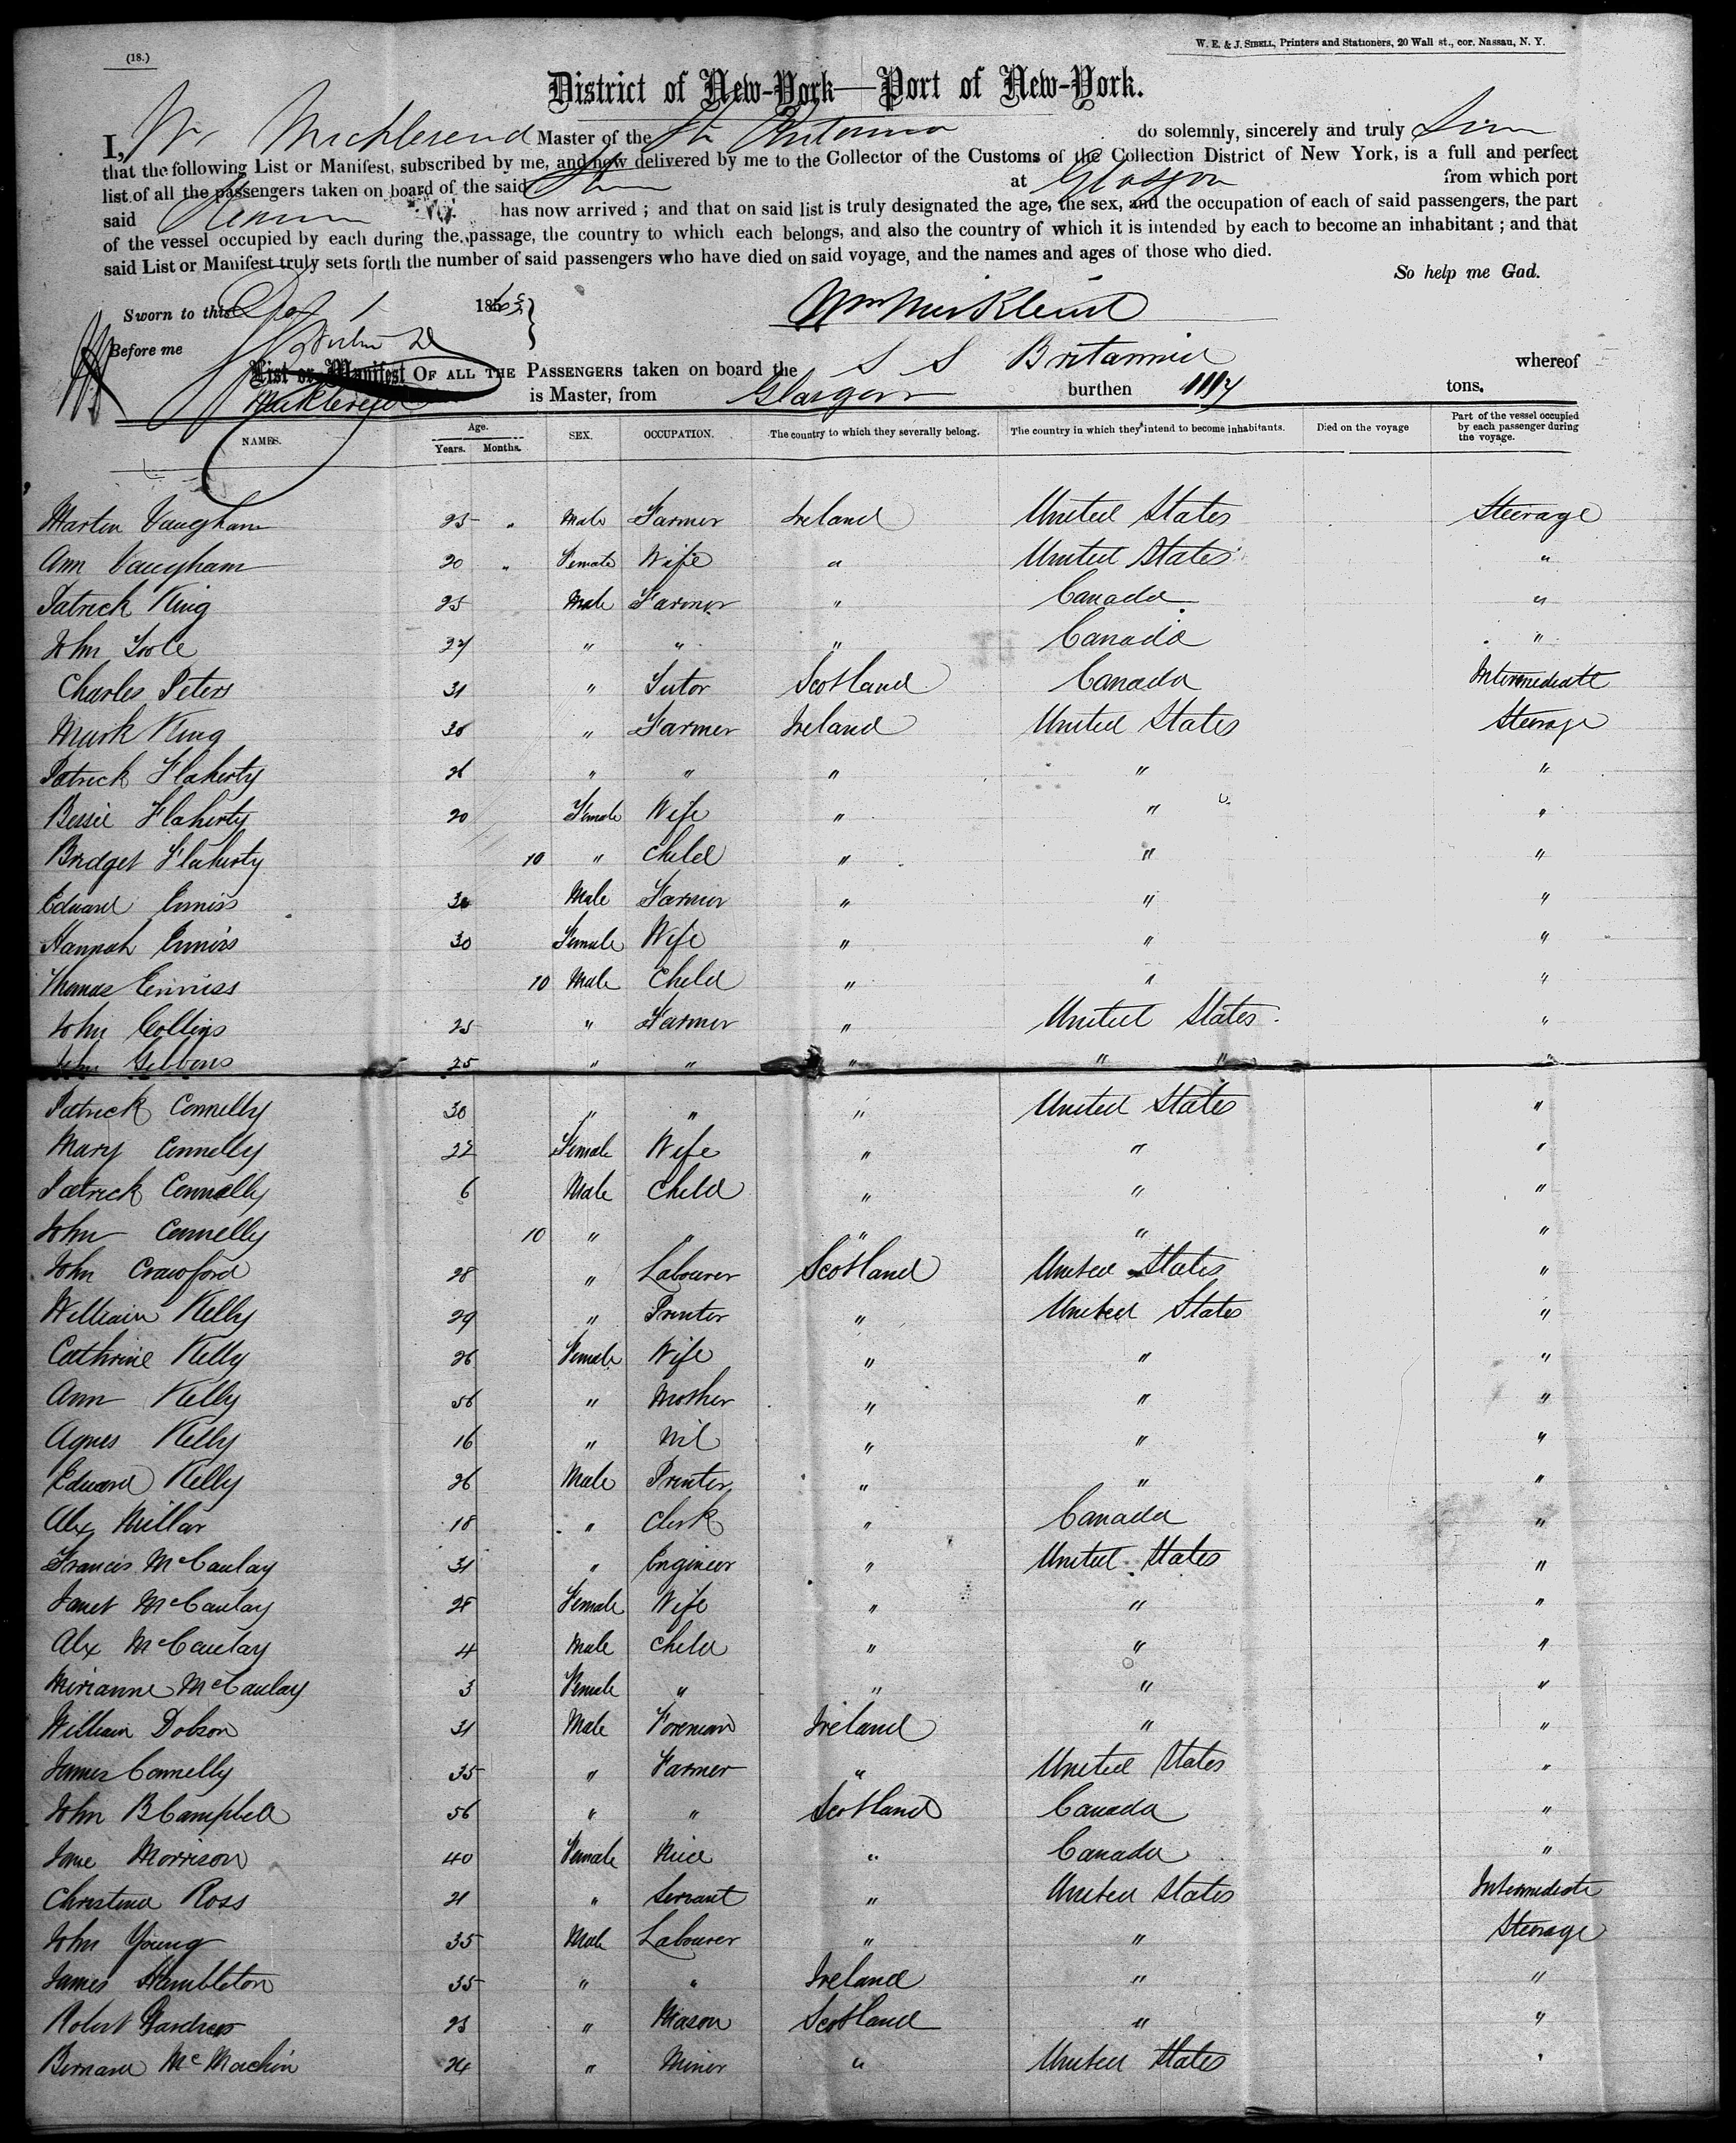 (18.)
W. E. & J. SIBELL, Printers and Stationers, 20 Wall st., cor. Nassau, N. Y.
District of New-York—Port of New-York.
I, Wm Master of the Str Britannia do solemnly, sincerely and truly
that the following List or Manifest, subscribed by me, and now delivered by me to the Collector of the Customs of the Collection District of New York, is a full and perfect
list of all the passengers taken on board of the said at Glasgow from which port
said has now arrived ; and that on said list is truly designated the age, the sex, and the occupation of each of said passengers, the part
of the vessel occupied by each during the passage, the country to which each belongs, and also the country of which it is intended by each to become an inhabitant ; and that
said List or Manifest truly sets forth the number of said passengers who have died on said voyage, and the names and ages of those who died.
So help me God.
Sworn to this 1 186
Before me
List or Manifest OF ALL THE PASSENGERS taken on board the S S Britannia whereof
is Master, from Glasgow burthen tons.
NAMES. Age. Years. Months. SEX. OCCUPATION. The country to which they severally belong. The country in which they intend to become inhabitants. Died on the voyage Part of the vessel occupied by each passenger during the voyage.
Martin Vaugham 25 " Male Farmer Ireland United States Steerage
Ann Vaugham 20 " Female Wife " United States "
Patrick King 25 Male Farmer " Canada "
John Toole 27 " " " Canada "
Charles Peters 31 " Tutor Scotland Canada Intermediate
Mark King 30 " Farmer Ireland United States Steerage
Patrick Flaherty 26 " " " " "
Bessie Flaherty 20 Female Wife " " "
Bridget Flaherty 10 " Child " " "
Edward Enniss 30 Male Farmer " " "
Hannah Enniss 30 Female Wife " " "
Thomas Enniss 10 Male Child " " "
John Collins 25 " Farmer " United States "
John Gibbons 25 " " " " " "
Patrick Connelly 30 " " " United States "
Mary Connelly 22 Female Wife " " "
Patrick Connelly 6 Male Child " " "
John Connelly 10 " " " " "
John Crawford 28 " Labourer Scotland United States "
William Kelly 29 " Printer " United States "
Cathrine Kelly 26 Female Wife " " "
Ann Kelly 56 " Mother " " "
Agnes Kelly 16 " Nil " " "
Edward Kelly 26 Male Printer " " "
Alex Millar 18 " Clerk " Canada "
Francis McCaulay 31 " Engineer " United States "
Janet McCaulay 28 Female Wife " " "
Alex McCaulay 4 Male Child " " "
Mirianne McCaulay 3 Female " " " "
William Dobson 31 Male Foreman Ireland " "
James Connelly 35 " Farmer " United States "
John B Campbell 56 " " Scotland Canada "
Jane Morrison 40 Female Niece " Canada "
Christina Ross 21 " Servant " United States Intermediate
John Young 35 Male Labourer " " Steerage
James Hambleton 35 " " Ireland " "
Robert 23 " Mason Scotland " "
Bernard McMachin 24 " Miner " United States "